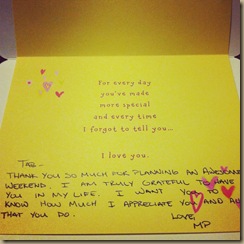 For every day
you've made
more special
and every time
I forgot to tell you...
I love you.
TAB-
THANK YOU SO MUCH FOR PLANNING AN AWESOME
WEEKEND. I AM TRULY GRATEFUL TO HAVE
YOU IN MY LIFE. I WANT YOU TO
KNOW HOW MUCH I APPRECIATE YOU AND ALL
THAT YOU DO.
LOVE,
MP